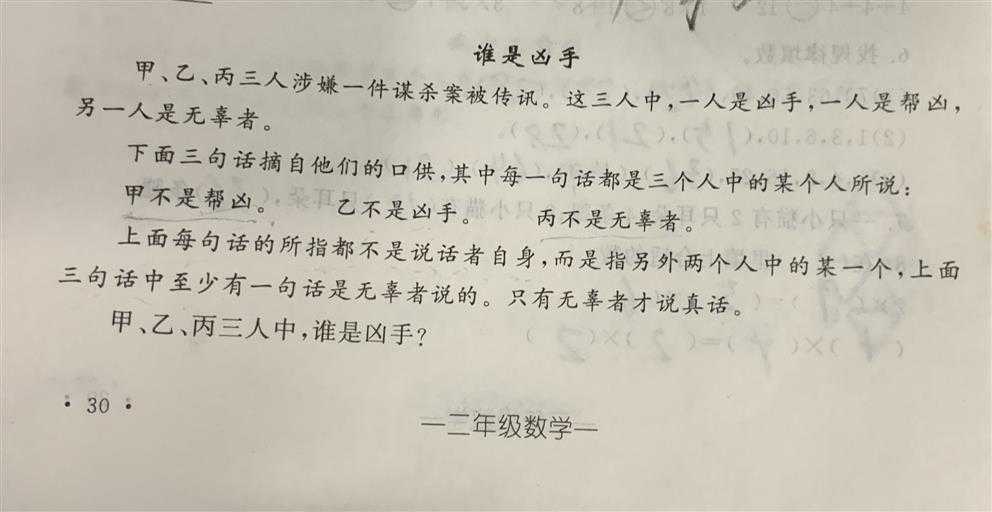 谁是凶手
甲、乙、丙三人涉嫌一件谋杀案被传讯。这三人中,一人是凶手,一人是帮凶,
另一人是无辜者。
下面三句话摘自他们的口供,其中每一句话都是三个人中的某个人所说:
甲不是帮凶。 乙不是凶手。 丙不是无辜者。
上面每句话的所指都不是说话者自身,而是指另外两个人中的某一个,上面
三句话中至少有一句话是无辜者说的。只有无辜者才说真话。
甲、乙、丙三人中,谁是凶手?
· 30 ·
—二年级数学—